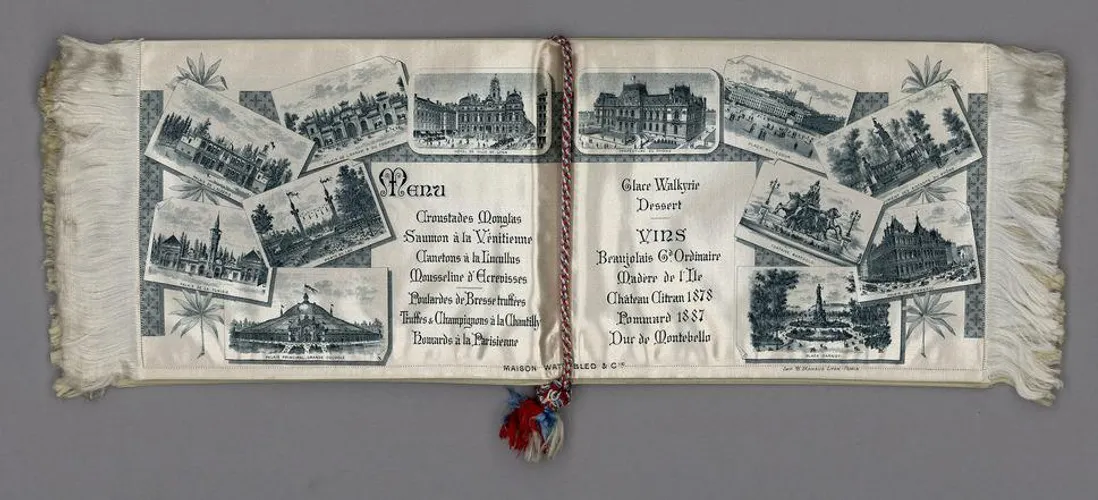 HÔTEL DE VILLE DE LYON
PLACE BELLECOUR
PALAIS PRINCIPAL, GRANDE COUPOLE
PLACE CARNOT
Menu
Croustades Monglas
Saumon à la Vénitienne
Canetons à la Lucullus
Mousseline d'Ecrevisses
Poulardes de Bresse truffées
Truffes & Champignons à la Chantilly
Homards à la Parisienne
Glace Walkyrie
Dessert
VINS
Beaujolais Gd Ordinaire
Madère de l'Ile
Château Citran 1878
Pommard 1887
Duc de Montebello
MAISON
& Cie